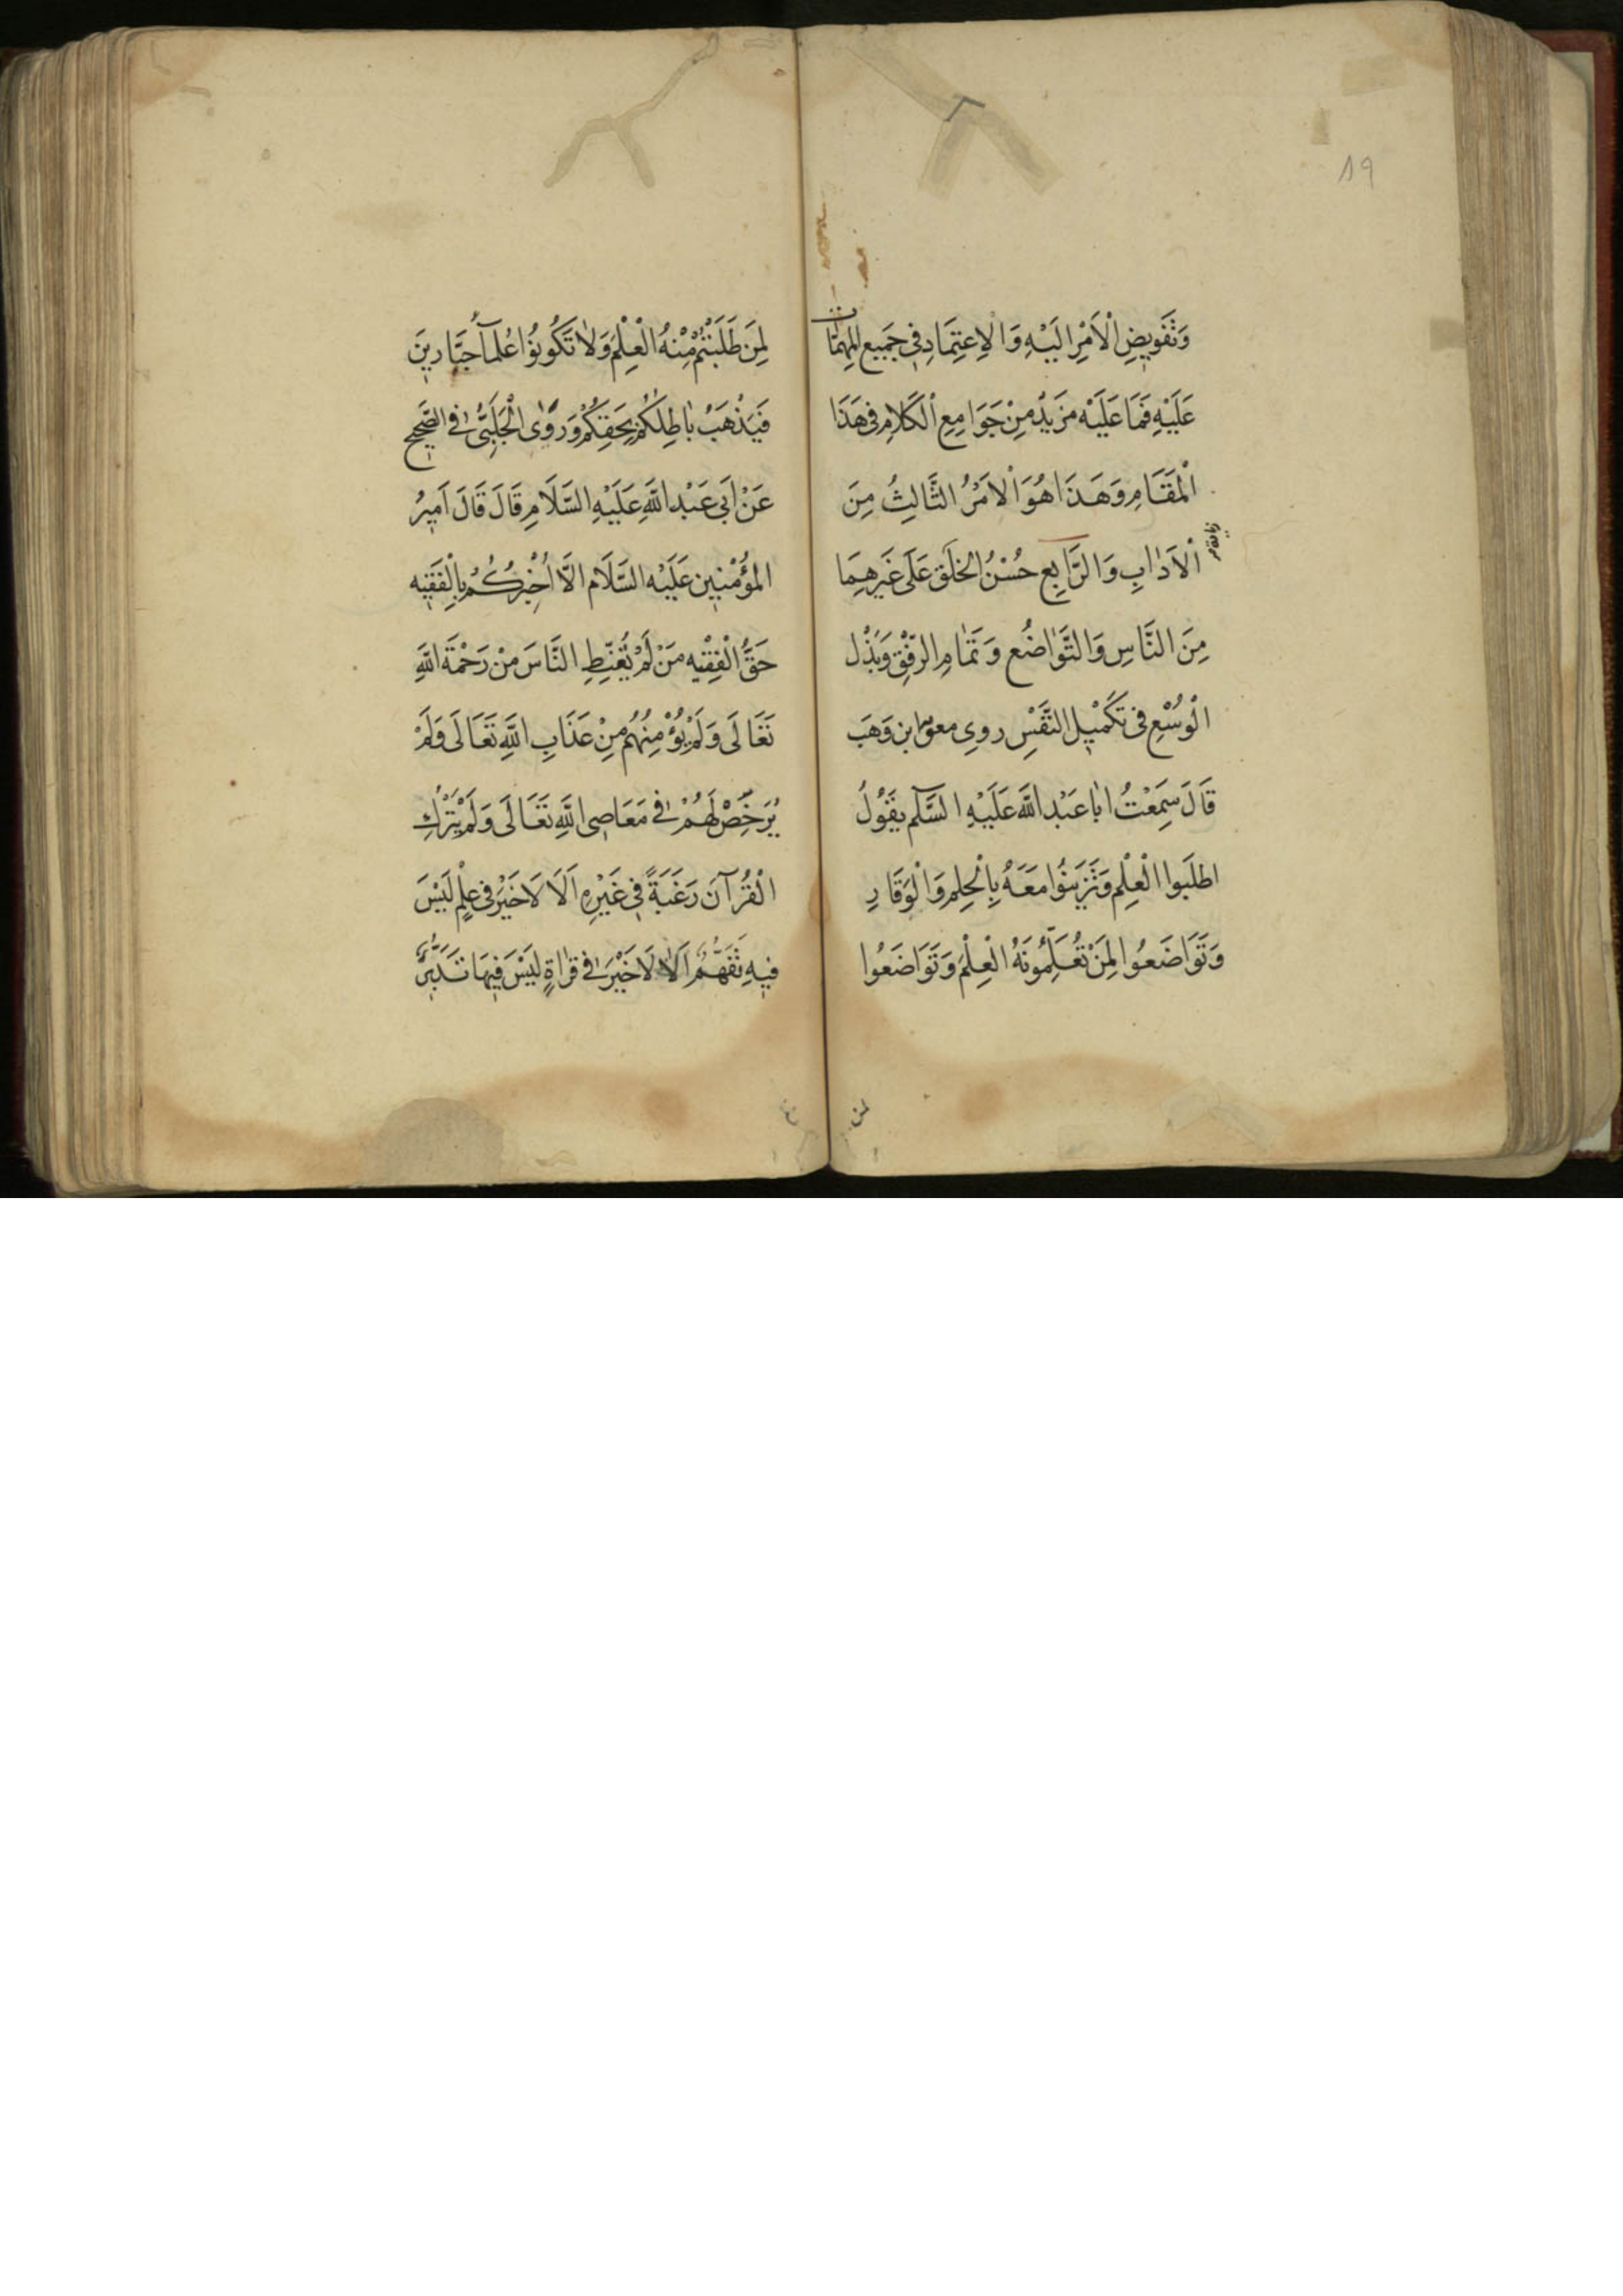 ١٩
وَتَفْوِيضِ الْاَمْرِ اِلَيْهِ وَالْاِعْتِمَادِ فِي جَمِيعِ المِهِمَّاتِ
عَلَيْهِ فَمَا عَلَيْهِ مَزِيدٌ مِنْ جَوَامِعِ الْكَلَامِ فِي هَذَا
الْمَقَامِ وَهَذَا هُوَ الْاَمْرُ الثَّالِثُ مِنَ
الْاَدَابِ وَالرَّابِع حُسْنُ الخَلْقِ عَلَى غَيْرِهِمَا
مِنَ النَّاسِ وَالتَّوَاضُعِ وَتَمَامِ الرِّفْقِ وَبَذْلِ
الْوُسْعِ فِي تَكْمِيْلِ النَّفْسِ روى معوية ابن وَهَب
قَالَ سَمِعْتُ ابَا عَبْدِ اللَّهِ عَلَيْهِ السَّلم يَقُوْلُ
اطلَبُوا الْعِلْم وَتَزَيَّنُوا مَعَهُ بِالْحِلمِ وَالْوَقَارِ
وَتَوَاضَعُوا لِمَنْ تُعَلِّمُونَهُ الْعِلْمَ وَتَوَاضَعُوا
لمن
لِمَنْ طَلَبْتُمْ مِنْهُ الْعِلْمَ وَلَا تَكُونُوْا عُلَمَآءَ جَبَّارِينَ
فَيَذْهَبَ بَاطِلُكُمْ بِحَقِّكُمْ وَرَوٰى الْحَلَبِيُّ فِي الصَّحِيح
عَنْ اَبِي عَبْدِ اللَّهِ عَلَيْهِ السَّلَامِ قَالَ قَالَ اَمِيْرُ
المُؤْمِنِيْنَ عَلَيْهِ السَّلَام الَّا اُخْبِرُكُمْ بِالْفَقِيْهِ
حَقَّ الْفِقْيهِ مَنْ لَمْ يُقَنِّطِ النَّاسَ مِنْ رَحْمَةِ اللَّهِ
تَعَالَى وَلَمْ يُؤْمِنْهُمْ مِنْ عَذَابِ اللَّهِ تَعَالَى وَلَمْ
يُرَخِّصْ لَهُمْ فِي مَعَاصِي اللَّهِ تَعَالَى وَلَمْ يَتْرُكِ
الْقُرْآنَ رَغْبَةً فِي غَيْرِهِ اَلَا لَا خَيْرَ فِي عِلْمٍ لَيْسَ
فِيهِ تَفَهُّمٌ اَلَا لَا خَيْرَ فِي قرَاةٍ لَيْسَ فِيْهَا تَدَبُّرٌ